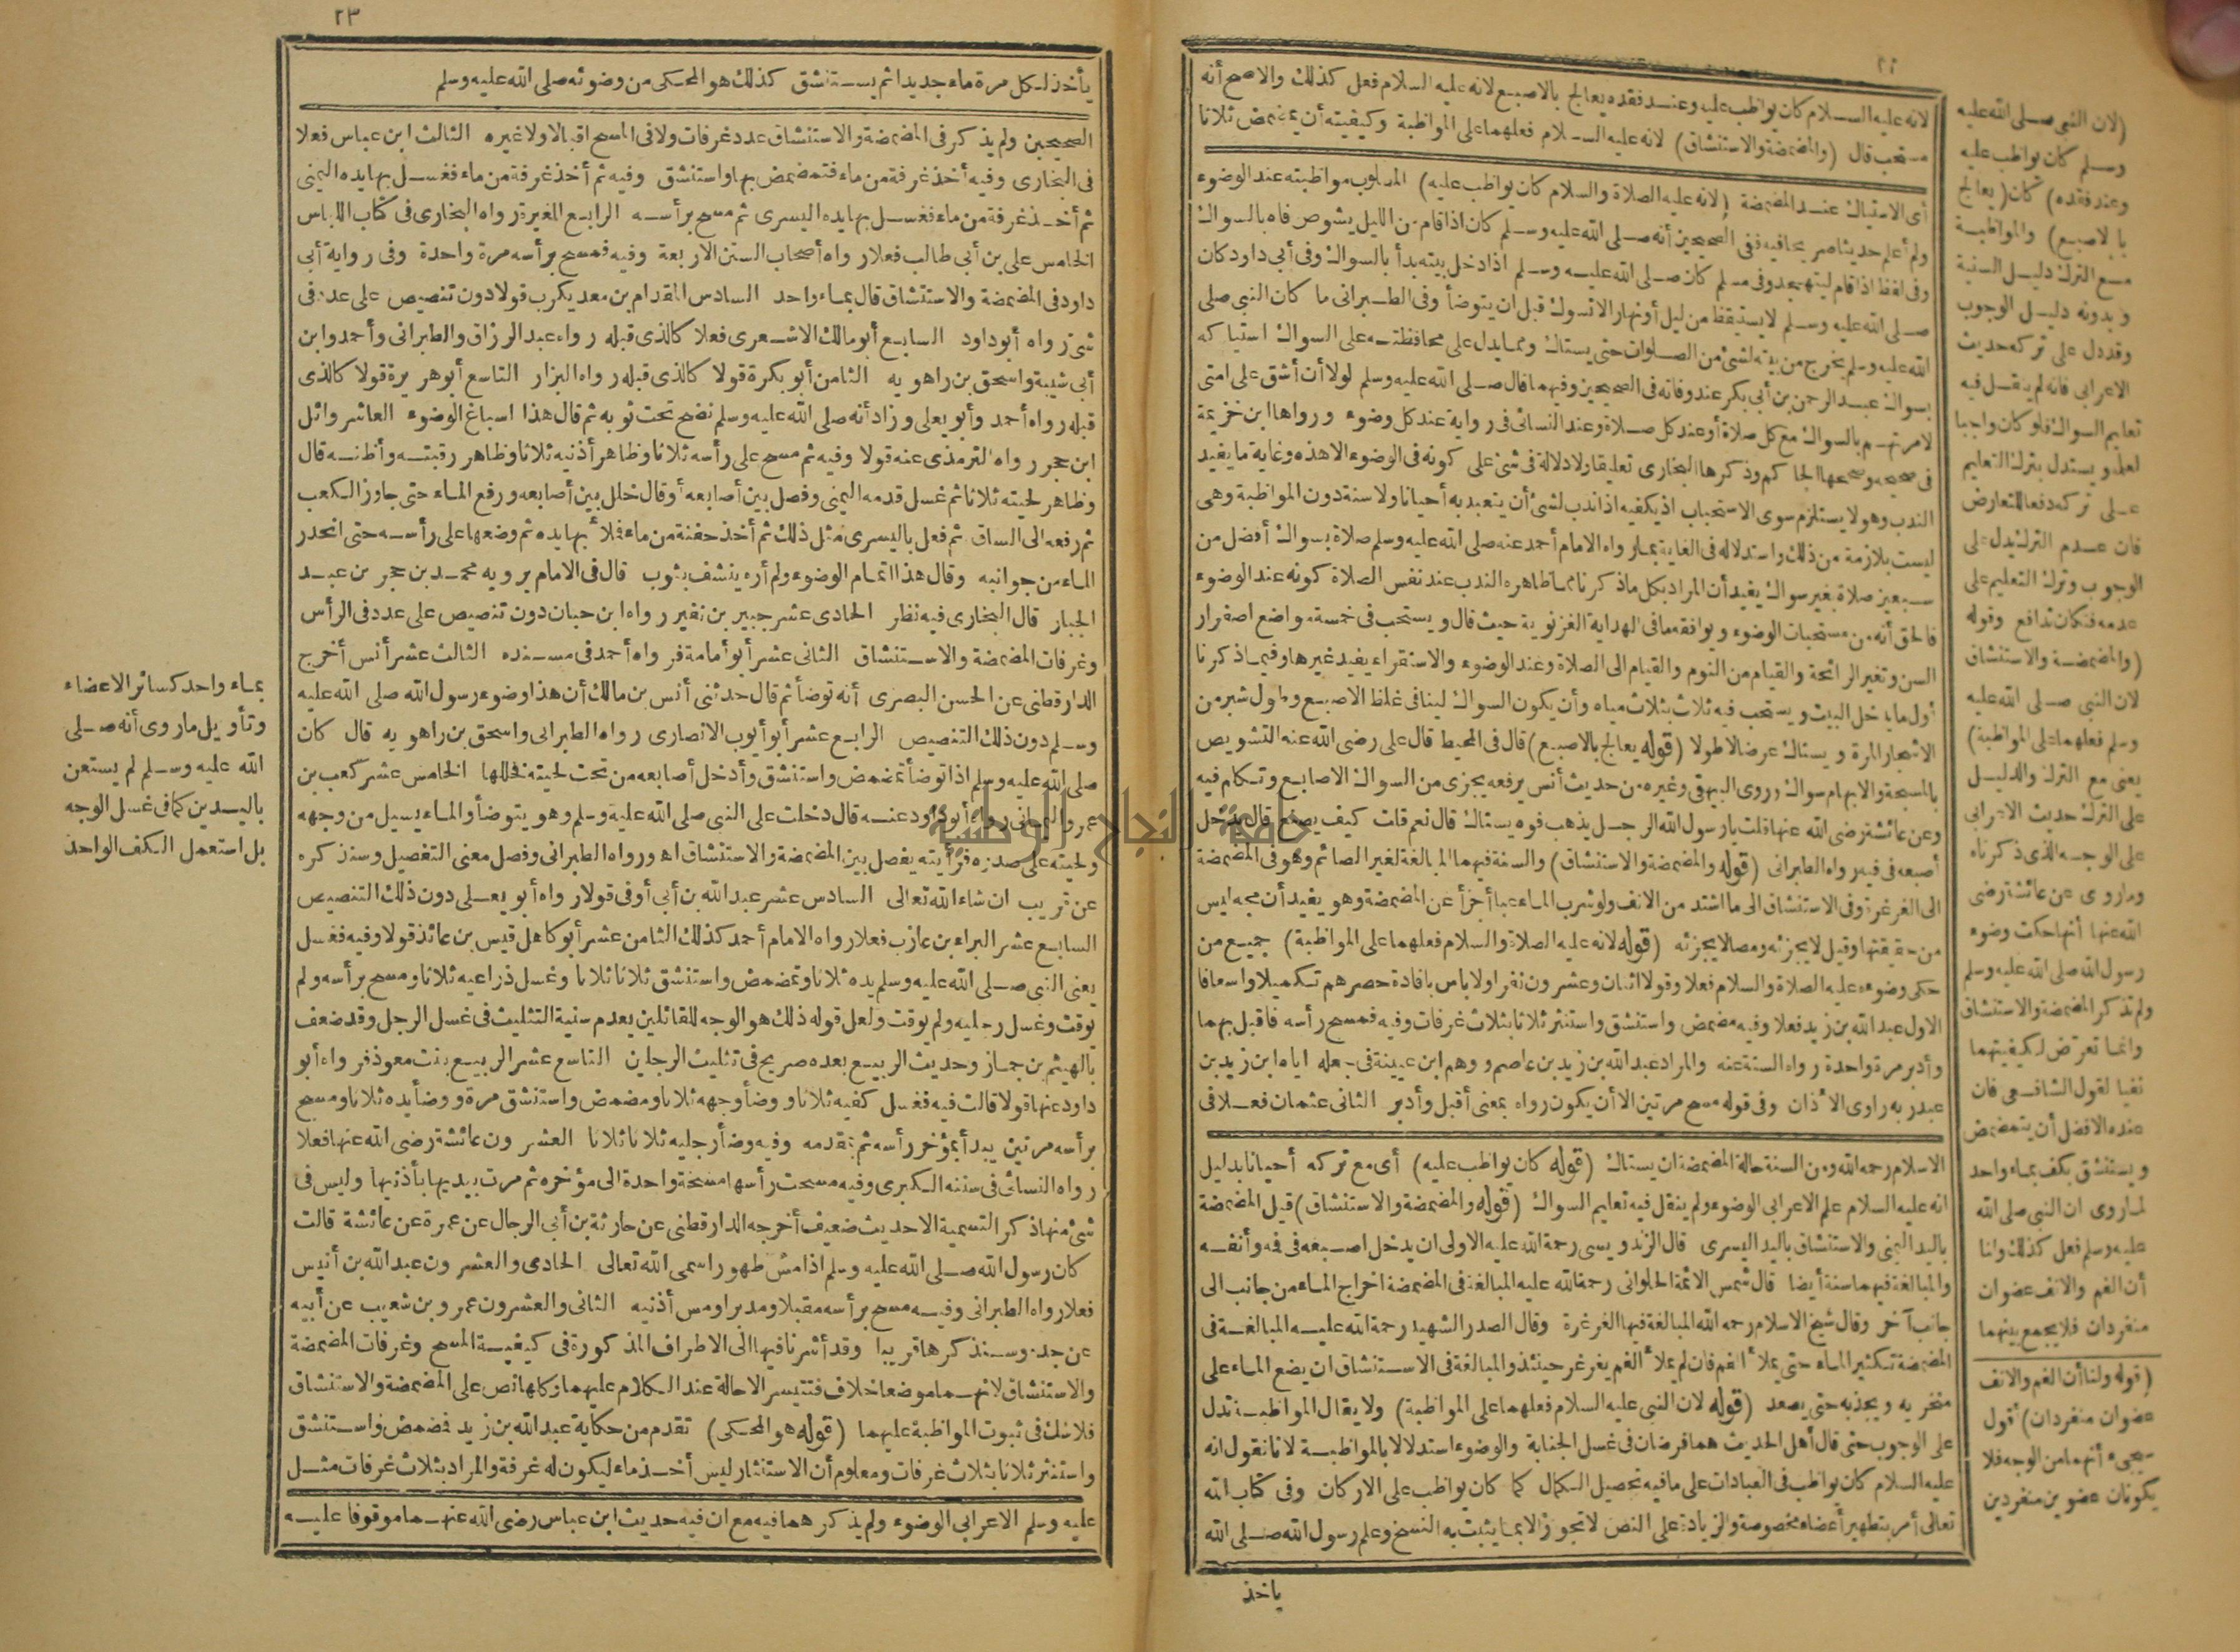 ٢٢
لانه عليه الســلام كان يواظب عليه وعنــد فقده يعالج بالاصبــع لانه عليه السلام فعل كذلك والاصح أنه
مستحب قال (والمضمضة والاستنشاق) لانه عليه الســلام فعلهما على المواظبة وكيفيته أن يمضمض ثلاثا
أى الاستياك عنــد المضمضة (لانه عليه الصلاة والسلام كان يواظب عليه) المطلوب مواظبته عند الوضوء
ولم أعلم حديثا صريحا فيه ففى الصحيحين أنه صــلى الله عليه وســلم كان اذا قام من الليل يشوص فاه بالسواك
وفى لفظ اذا قام ليتهجد وفى مسلم كان صــلى الله عليــه وســلم اذا دخل بيته بدأ بالسواك وفى أبى داود كان
صــلى الله عليه وســلم لا يستيقظ من ليل أو نهار الا تسوك قبل ان يتوضأ وفى الطــبرانى ما كان النبى صلى
الله عليه وسلم يخرج من بيته لشئ من الصــلوات حتى يستاك ومما يدل على محافظتــه على السواك استياكه
بسواك عبــد الرحمن بن أبى بكر عند وفاته فى الصحيحين وفيهما قال صــلى الله عليه وسلم لولا أن أشق على امتى
لامرتهــم بالسواك مع كل صلاة أو عند كل صــلاة وعند النسائى فى رواية عند كل وضوء ورواها ابن خزيمة
فى صحيحه وصححها الحاكم وذكرها البخارى تعليقا ولا دلالة فى شئ على كونه فى الوضوء الا هذه وغاية ما يفيد
الندب وهو لا يستلزم سوى الاستحباب اذ يكفيه اذا ندب لشئ أن يتعبد به أحيانا ولا سنة دون المواظبة وهى
ليست بلازمة من ذلك واستدلاله فى الغاية بمارواه الامام أحمد عنه صلى الله عليه وسلم صلاة بسواك أفضل من
ســبعين صلاة بغير سواك يفيد أن المراد بكل ماذكرنا مما ظاهره الندب عند نفس الصلاة كونه عند الوضوء
فالحق أنه من مستحبات الوضوء ويوافقه ما فى الهداية الغزنوية حيث قال ويستحب فى خمسة مواضع اصفرار
السن وتغير الرائحة والقيام من النوم والقيام الى الصلاة وعند الوضوء والاستقراء يفيد غيرها وفيما ذكرنا
أول ما يدخل البيت ويستحب فيه ثلاث بثلاث مياه وأن يكون السواك لينا فى غلظ الاصبــع وطول شبر من
الاشجار المرة ويستاك عرضا لا طولا (قوله يعالج بالاصبــع) قال فى المحيط قال على رضى الله عنه التشويص
بالمسبحة والابهام سواك وروى البيهقى وغيره من حديث أنس يرفعه يجزى من السواك الاصابــع وتكلم فيه
وعن عائشة رضى الله عنها قلت يارسول الله الرجــل يذهب فوه يستاك قال نعم قلت كيف يصنع قال يدخل
أصبعه فى فيه رواه الطبرانى (قوله والمضمضة والاستنشاق) والسنة فيهما المبالغة لغير الصائم وهو فى المضمضة
الى الغرغرة وفى الاستنشاق الى ما اشتد من الانف ولو شرب الماء عبا أجزأ عن المضمضة وهو يفيد أن مجه ليس
من حقيقتها وقيل لا يجزئه ومصا لا يجزئه (قوله لانه عليه الصلاة والسلام فعلهما على المواظبة) جميــع من
حكى وضوءه عليه الصلاة والسلام فعلا وقولا اثنان وعشرون نفرا ولا باس بافادة حصرهم تكميلا واسعافا
الاول عبد الله بن زيد فعلا وفيه مضمض واستنشق واستنثر ثلاثا بثلاث غرفات وفيه فمسح رأسه فاقبل بهما
وأدبر مرة واحدة رواه الستة عنه والمراد عبد الله بن زيد بن عاصم ووهم ابن عيينة فى جعله اياه ابن زيد بن
عبد ربه راوى الأذان وفى قوله مسح مرتين الا أن يكون رواه بمعنى أقبل وأدبر الثانى عثمان فعــلا فى
الاسلام رحمه الله ومن السنة حالة المضمضة ان يستاك (قوله كان يواظب عليه) أى مع تركه أحيانا بدليل
انه عليه السلام علم الاعرابى الوضوء ولم ينقل فيه تعليم السواك (قوله والمضمضة والاستنشاق) قيل المضمضة
باليد اليمنى والاستنشاق باليد اليسرى قال الزندويسى رحمة الله عليه الاولى ان يدخل اصــبعه فى فمه وأنفــه
والمبالغة فيهما سنة أيضا قال شمس الائمة الحلوانى رحمة الله عليه المبالغة فى المضمضة اخراج الماء من جانب الى
جانب آخر وقال شيخ الاسلام رحمه الله المبالغة فيها الغرغرة وقال الصدر الشهيد رحمة الله عليــه المبالغــة فى
المضمضة تكثير الماء حتى يملأ الفم فان لم يملأ الفم يغرغر حينئذ والمبالغة فى الاســتنشاق ان يضع الماء على
منخريه ويجذبه حتى يصعد (قوله لان النبى عليه السلام فعلهما على المواظبة) ولا يقال المواظبــة تدل
على الوجوب حتى قال أهل الحديث هما فرضان فى غسل الجنابة والوضوء استدلالا بالمواظبــة لانا نقول انه
عليه السلام كان يواظب فى العبادات على ما فيه تحصيل الكمال كما كان يواظب على الاركان وفى كتاب الله
تعالى أمر بتطهير أعضاء مخصوصة والزيادة على النص لا تجوز الا بما يثبت به النسخ وعلم رسول الله صــلى الله
يأخذ
(لان النبى صــلى الله عليه
وســلم كان يواظب عليه
وعند فقده) كان (يعالج
بالاصبــع) والمواظبــة
مــع الترك دليــل السنية
وبدونه دليــل الوجوب
وقد دل على تركه حديث
الاعرابى فانه لم ينقــل فيه
تعليم السواك فلو كان واجبا
لعلمه ويستدل بترك التعليم
عــلى تركه دفعا للتعارض
فان عــدم الترك يدل على
الوجوب وترك التعليم على
عدمه فكان تدافع وقوله
(والمضمضــة والاستنشاق
لان النبى صــلى الله عليه
وسلم فعلهما على المواظبة)
يعنى مع الترك والدليــل
على الترك حديث الاعرابى
على الوجــه الذى ذكرناه
وماروى عن عائشة رضى
الله عنها أنها حكت وضوء
رسول الله صلى الله عليه وسلم
ولم تذكر المضمضة والاستنشاق
وانما تعرض لكيفيتهما
نفيا لقول الشافــعى فان
عنده الافضل أن يتمضمض
ويستنشق بكف بماء واحد
لماروى ان النبى صلى الله
عليه وسلم فعل كذلك ولنا
أن الفم والانف عضوان
منفردان فلا يجمع بينهما
(قوله ولنا أن الفم والانف
عضوان منفردان) أقول
سيجىء أنهما من الوجه فلا
يكونان عضوين منفردين
٢٣
يأخذ لكل مرة ماء جديدا ثم يســتنشق كذلك هو المحكى من وضوئه صلى الله عليه وسلم
الصحيحين ولم يذكر فى المضمضة والاستنشاق عدد غرفات ولا فى المسح اقبالا ولا غيره الثالث ابن عباس فعلا
فى البخارى وفيه أخذ غرفة من ماء فتمضمض بها واستنشق وفيه ثم أخذ غرفة من ماء فغســل بها يده اليمنى
ثم أخــذ غرفة من ماء فغســل بها يده اليسرى ثم مسح برأســه الرابــع المغيرة رواه البخارى فى كتاب اللباس
الخامس على بن أبى طالب فعلا رواه أصحاب السنن الاربعة وفيه فمسح برأسه مرة واحدة وفى رواية أبى
داود فى المضمضة والاستنشاق قال بمــاء واحد السادس المقدام بن معديكرب قولا دون تنصيص على عدد فى
شئ رواه أبو داود السابــع أبو مالك الاشــعرى فعلا كالذى قبله رواه عبد الرزاق والطبرانى وأحمد وابن
أبى شيبة واسحق بن راهويه الثامن أبو بكرة قولا كالذى قبله رواه البزار التاسع أبو هريرة قولا كالذى
قبله رواه أحمد وأبو يعلى وزاد أنه صلى الله عليه وسلم نضح تحت ثوبه ثم قال هذا اسباغ الوضوء العاشر وائل
ابن حجر رواه الترمذى عنه قولا وفيه ثم مسح على رأسه ثلاثا وظاهر أذنيه ثلاثا وظاهر رقبتــه وأظنــه قال
وظاهر لحيته ثلاثا ثم غسل قدمه اليمنى وفصل بين أصابعه أو قال خلل بين أصابعه ورفع الماء حتى جاوز الكعب
ثم رفعه الى الساق ثم فعل باليسرى مثل ذلك ثم أخذ حفنة من ماء فملأ بها يده ثم وضعها على رأســه حتى انحدر
الماء من جوانبه وقال هذا اتمام الوضوء ولم أره ينشف بثوب قال فى الامام يرويه محمــد بن حجر بن عبــد
الجبار قال البخارى فيه نظر الحادى عشر جبير بن نفير رواه ابن حبان دون تنصيص على عدد فى الرأس
وغرفات المضمضة والاســتنشاق الثانى عشر أبو أمامة فرواه أحمد فى مســنده الثالث عشر أنس أخرج
الدارقطنى عن الحسن البصرى أنه توضأ ثم قال حدثنى أنس بن مالك أن هذا وضوء رسول الله صلى الله عليه
وســلم دون ذلك التنصيص الرابــع عشر أبو أيوب الانصارى رواه الطبرانى واسحق بن راهويه قال كان
صلى الله عليه وسلم اذا توضأ تمضمض واستنشق وأدخل أصابعه من تحت لحيته فخللها الخامس عشر كعب بن
عمرو اليمانى رواه أبو داود عنــه قال دخلت على النبى صلى الله عليه وسلم وهو يتوضأ والماء يسيل من وجهه
ولحيته على صدره فرأيته يفصل بين المضمضة والاستنشاق اه ورواه الطبرانى وفصل معنى التفصيل وسنذكره
عن قريب ان شاء الله تعالى السادس عشر عبد الله بن أبى أوفى قولا رواه أبو يعــلى دون ذلك التنصيص
السابــع عشر البراء بن عازب فعلا رواه الامام أحمد كذلك الثامن عشر أبو كاهل قيس بن عائذ قولا وفيه فغسل
يعنى النبى صــلى الله عليه وسلم يده ثلاثا وتمضمض واستنشق ثلاثا ثلاثا وغسل ذراعيه ثلاثا ومسح برأسه ولم
يوقت وغسل رجليه ولم يوقت ولعل قوله ذلك هو الوجه للقائلين بعدم سنية التثليث فى غسل الرجل وقد ضعف
بالهيثم بن جماز وحديث الربيــع بعده صريح فى تثليث الرجلين التاسع عشر الربيــع بنت معوذ فرواه أبو
داود عنها قولا قالت فيه فغسل كفيه ثلاثا ووضأ وجهه ثلاثا ومضمض واستنشق مرة ووضأ يده ثلاثا ومسح
برأسه مرتين يبدأ بمؤخر رأسه ثم بمقدمه وفيه وضأ رجليه ثلاثا ثلاثا العشرون عائشة رضى الله عنها فعلا
رواه النسائى فى سننه الكبرى وفيه مسحت رأسها مسحة واحدة الى مؤخره ثم مرت بيديها بأذنيها وليس فى
شئ منها ذكر التسمية الا حديث ضعيف أخرجه الدارقطنى عن حارثة بن أبى الرجال عن عمرة عن عائشة قالت
كان رسول الله صــلى الله عليه وسلم اذا مس طهورا سمى الله تعالى الحادى والعشرون عبد الله بن أنيس
فعلا رواه الطبرانى وفيــه مسح برأسه مقبلا ومدبرا ومس أذنيه الثانى والعشرون عمرو بن شعيب عن أبيه
عن جده وســنذكرها قريبا وقد أشرنا فيها الى الاطراف المذكورة فى كيفيــة المسح وغرفات المضمضة
والاستنشاق لانهــما موضعا خلاف فتتيسر الاحالة عند الكلام عليهما وكلها نص على المضمضة والاستنشاق
فلا شك فى ثبوت المواظبة عليهما (قوله هو المحكى) تقدم من حكاية عبد الله بن زيد فمضمض واســتنشق
واستنثر ثلاثا بثلاث غرفات ومعلوم أن الاستنثار ليس أخــذ ماء ليكون له غرفة والمراد بثلاث غرفات مثــل
عليه وسلم الاعرابى الوضوء ولم يذكرهما فيه مع ان فيه حديث ابن عباس رضى الله عنهــما موقوفا عليــه
بماء واحد كسائر الاعضاء
وتأويل ماروى أنه صــلى
الله عليه وســلم لم يستعن
باليــدين كما فى غسل الوجه
بل استعمل الكف الواحد
جامعة النجاح الوطنية